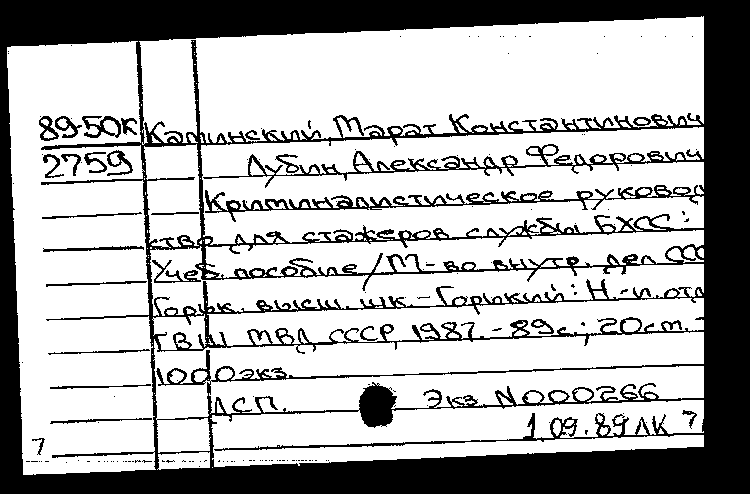 89-50К Каминский, Марат Константинович
2759 Лубин, Александр Федорович
Криминалистическое руковод
ство для стажеров службы БХСС:
Учеб. пособие / М-во внутр. дел ССС
Горьк. высш. шк. - Горький: Н.-и. отд
ГВШ МВД СССР, 1987. - 89с.; 20см. -
1000экз.
ДСП. Экз. N000266
1.09.89 ЛК 7
7